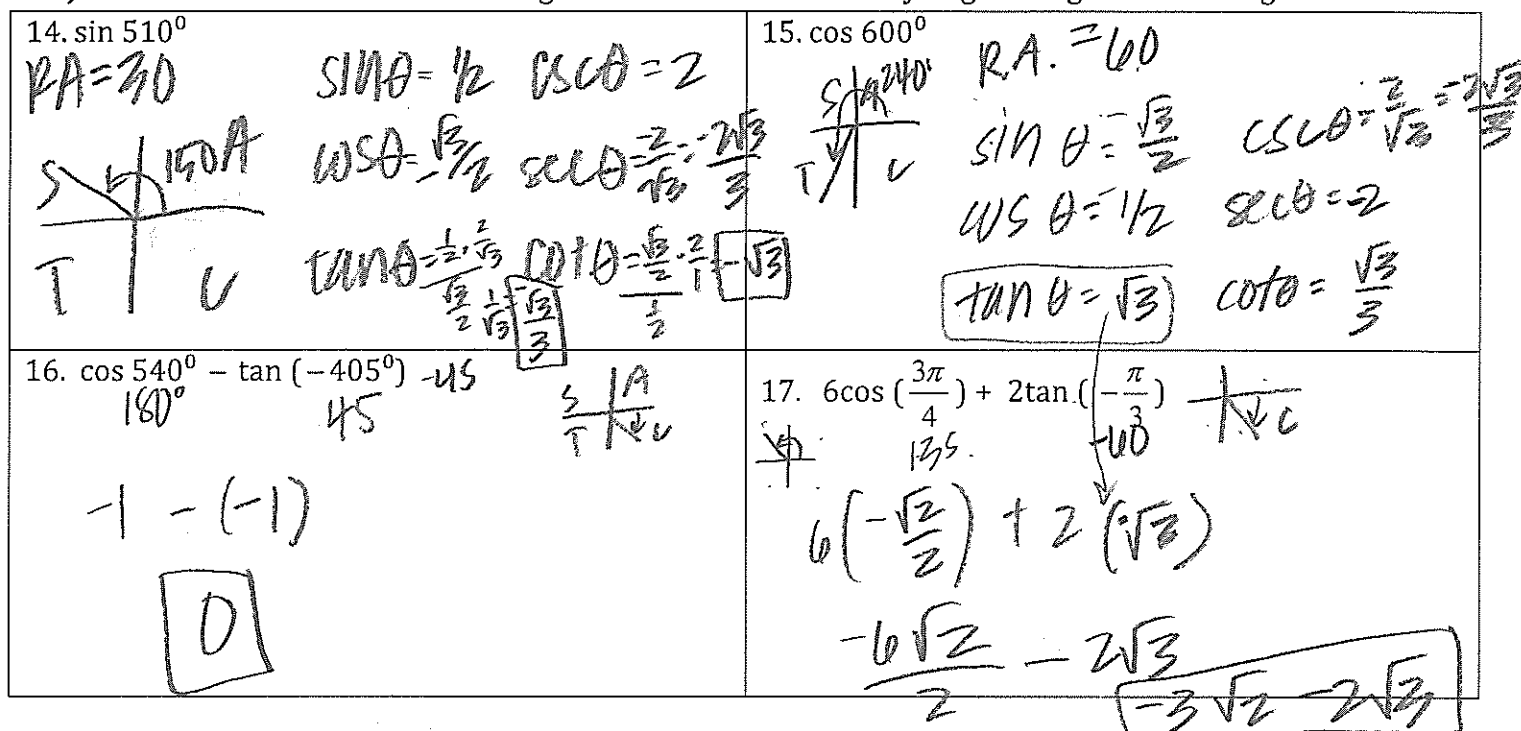 14. sin 510⁰
RA=30 sinθ= 1/2 cscθ=2
cosθ=-√3/2 secθ=-2/√3=-2√3/3
S 150 A
T C
tanθ= 1/2 · 2/√3 1/√3 = -√3/3
√3/2
cotθ= √3/2 · 2/1 = -√3
1/2
15. cos 600⁰
R.A. = 60
S A 240°
T C
sin θ = -√3/2 cscθ=-2/√3 = -2√3/3
cos θ=-1/2 secθ=-2
tan θ= √3 cotθ= √3/3
16. cos 540⁰ − tan (−405⁰) -45
180° 45
S A
T C
-1 - (-1)
0
17. 6cos (3π/4) + 2tan (−π/3)
C
135. -60
6(-√2/2) + 2(-√3)
-6√2/2 - 2√3
-3√2 -2√3